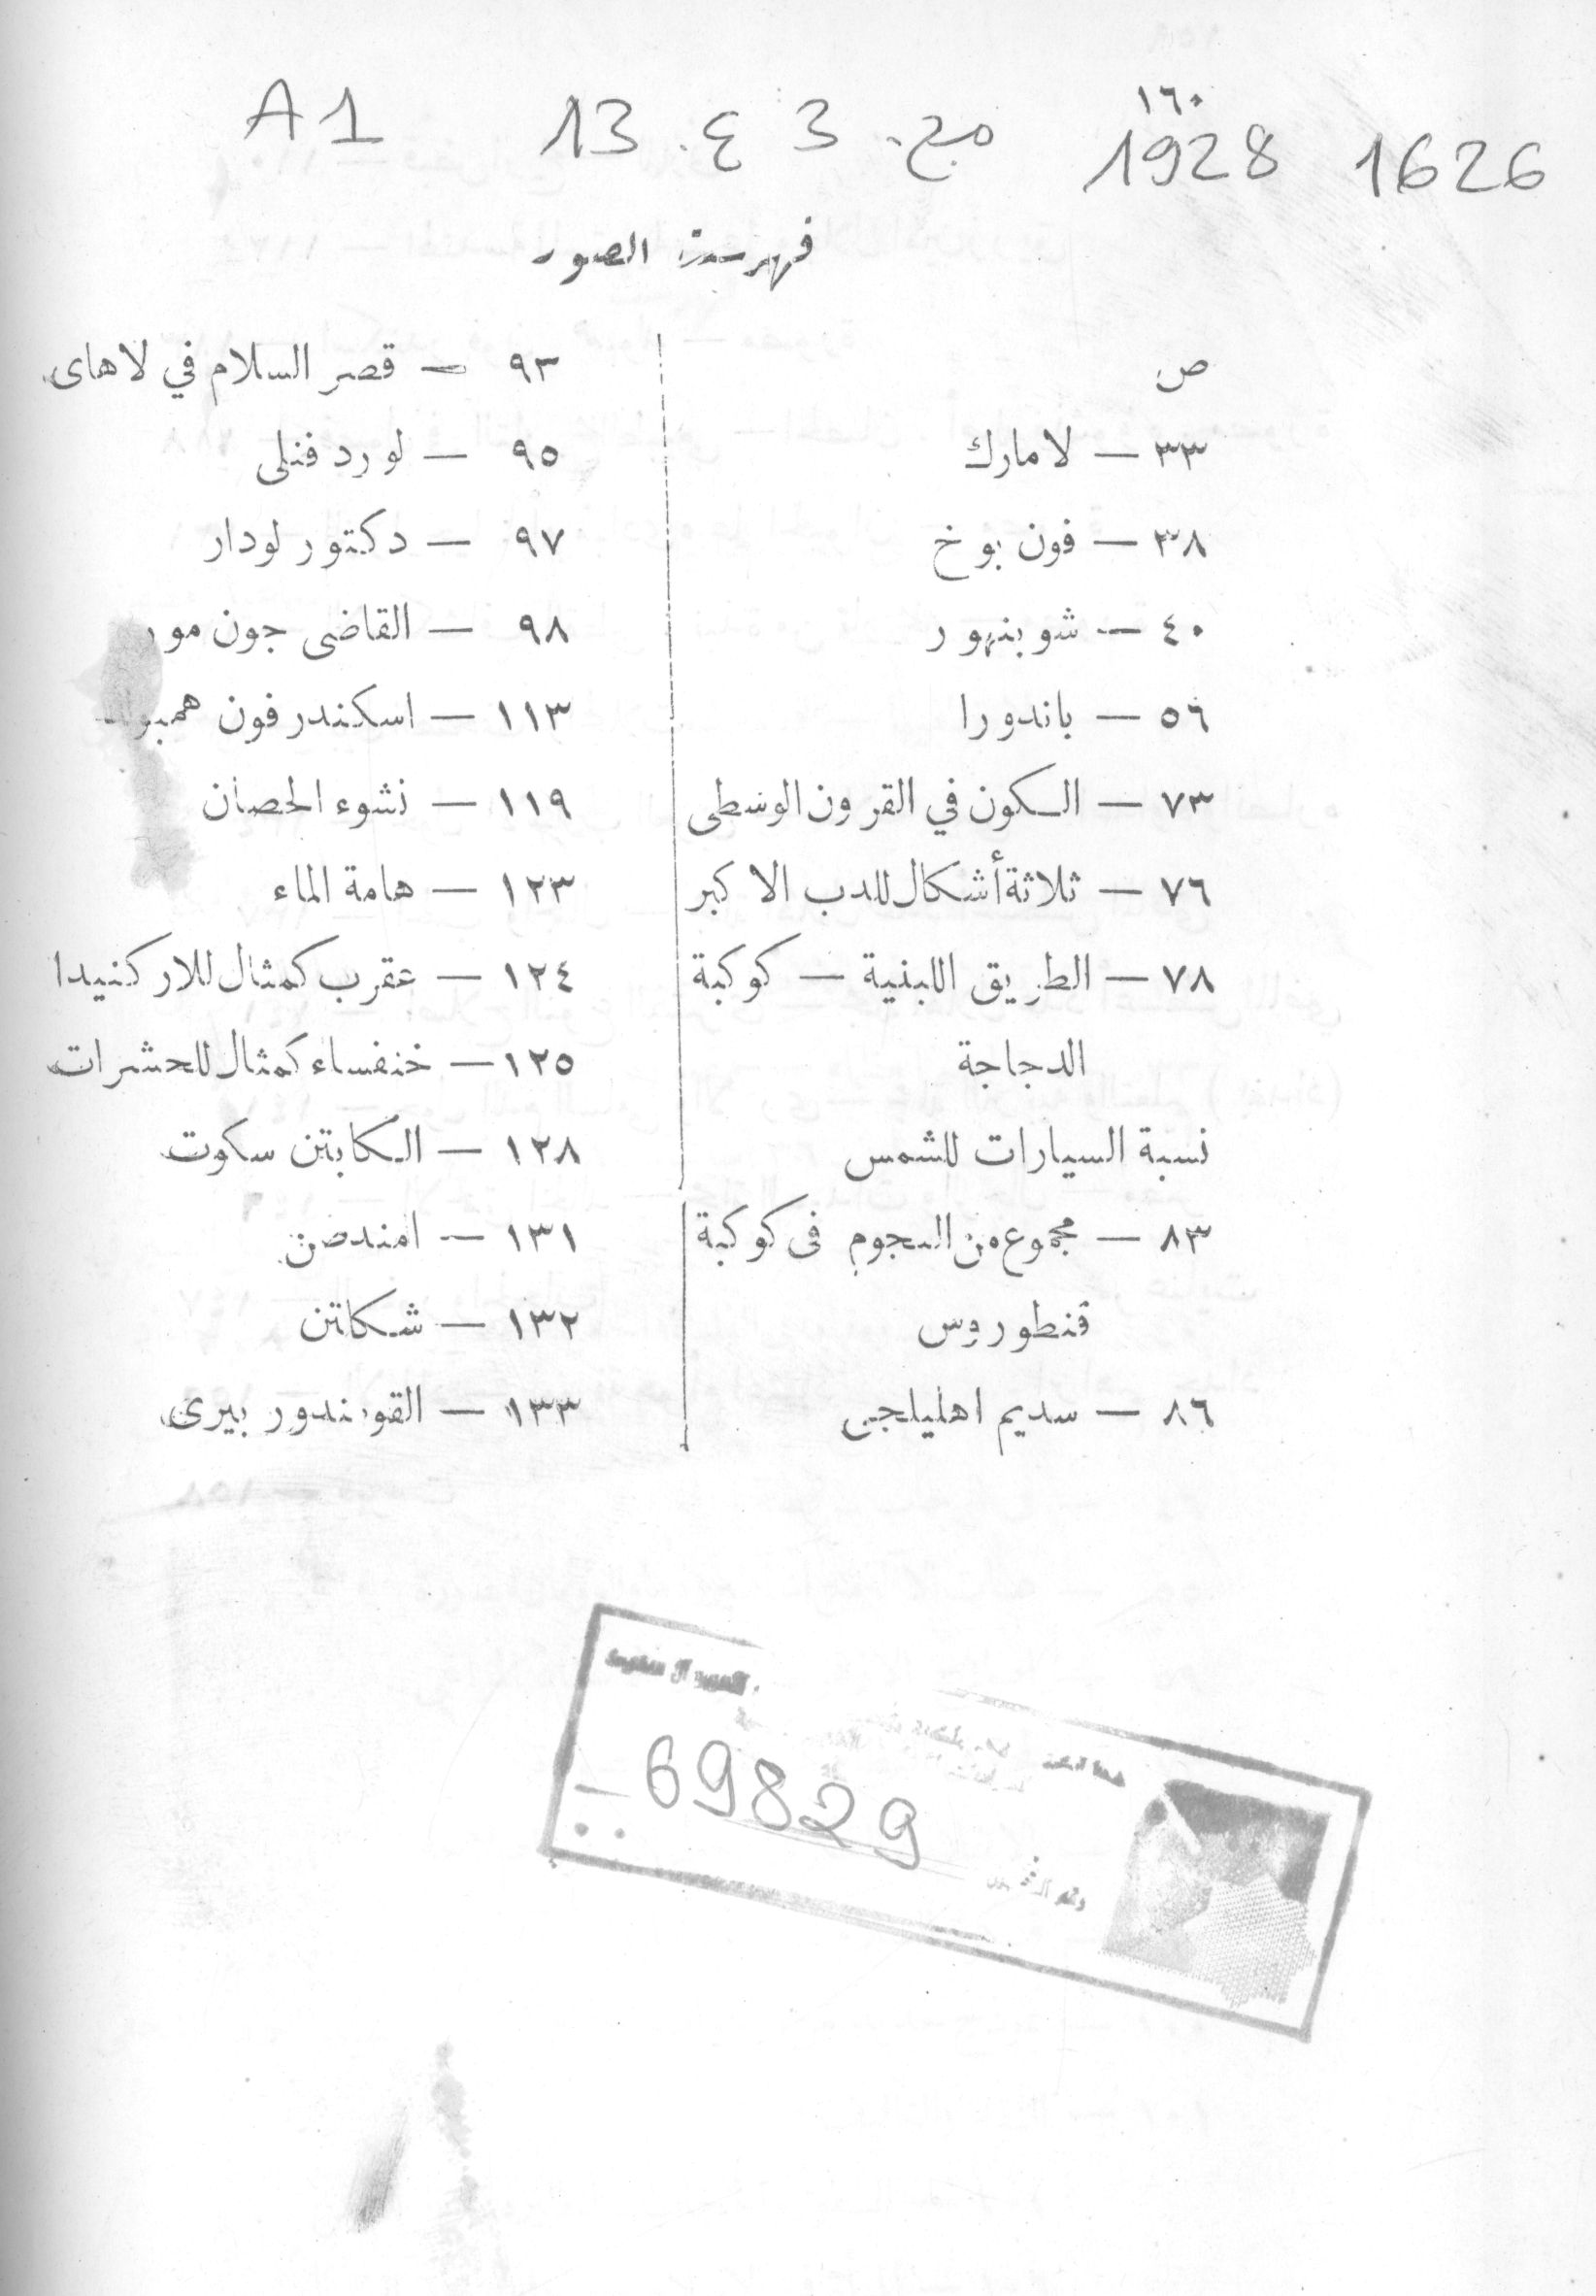 ١٦٠
A1 13 .ع 3 مج. 1928 1626
فهرست الصور
ص
٣٣ — لامارك
٣٨ — فون بوخ
٤٠ — شوبنهور
٥٦ — باندورا
٧٣ — الكون في القرون الوسطى
٧٦ — ثلاثة أشكال للدب الاكبر
٧٨ — الطريق اللبنية — كوكبة
الدجاجة
نسبة السيارات للشمس
٨٣ — مجموع من النجوم فى كوكبة
قنطوروس
٨٦ — سديم اهليلجى
٩٣ — قصر السلام في لاهاى
٩٥ — لورد فنلى
٩٧ — دكتور لودار
٩٨ — القاضى جون مور
١١٣ — اسكندر فون
١١٩ — نشوء الحصان
١٢٣ — هامة الماء
١٢٤ — عقرب كمثال للاركنيدا
١٢٥ — خنفساء كمثال للحشرات
١٢٨ — الكابتن سكوت
١٣١ — امندصن
١٣٢ — شكاتن
١٣٣ — القومندور بيرى
69829